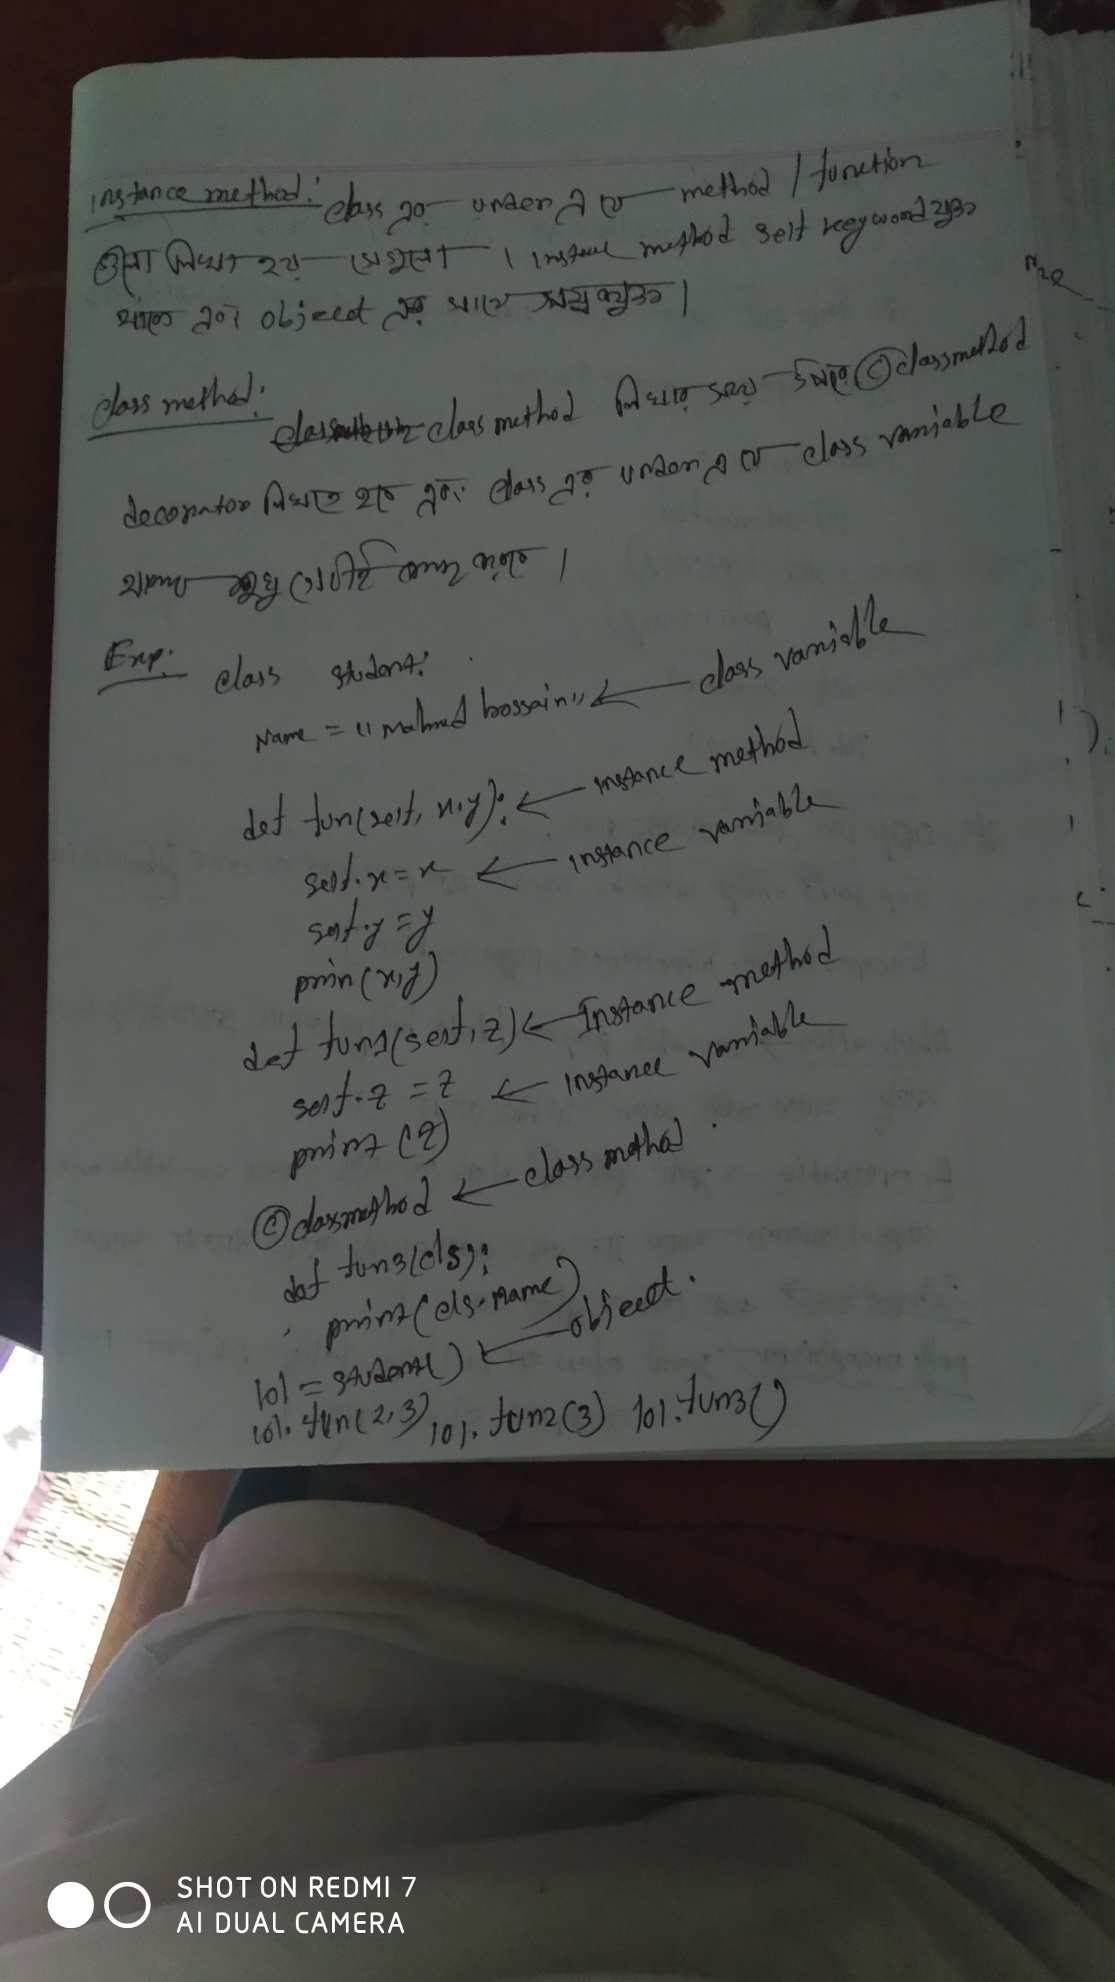 instance method: class এর under এ যে method / function
গুলা লিখা হয় সেগুলো । instance method self keyword যুক্ত
থাকে এবং object এর সাথে সম্পর্কযুক্ত ।
class method:
class method লিখার সময় উপরে @classmethod
decorator লিখতে হবে এবং class এর under এ যে class variable
থাকে শুধু সেটাই কাজ করবে ।
Exp: class student:
Name = "mahmud hossain" ← class variable
def fun(self, x,y): ← instance method
self.x = x ← instance variable
self.y = y
prin(x,y)
def fun2(self, z) ← Instance method
self.z = z ← instance variable
print(z)
@classmethod ← class method
def fun3(cls):
print(cls.name)
lol = student() ← object
lol.fun(2,3) lol.fun2(3) lol.fun3()
SHOT ON REDMI 7
AI DUAL CAMERA